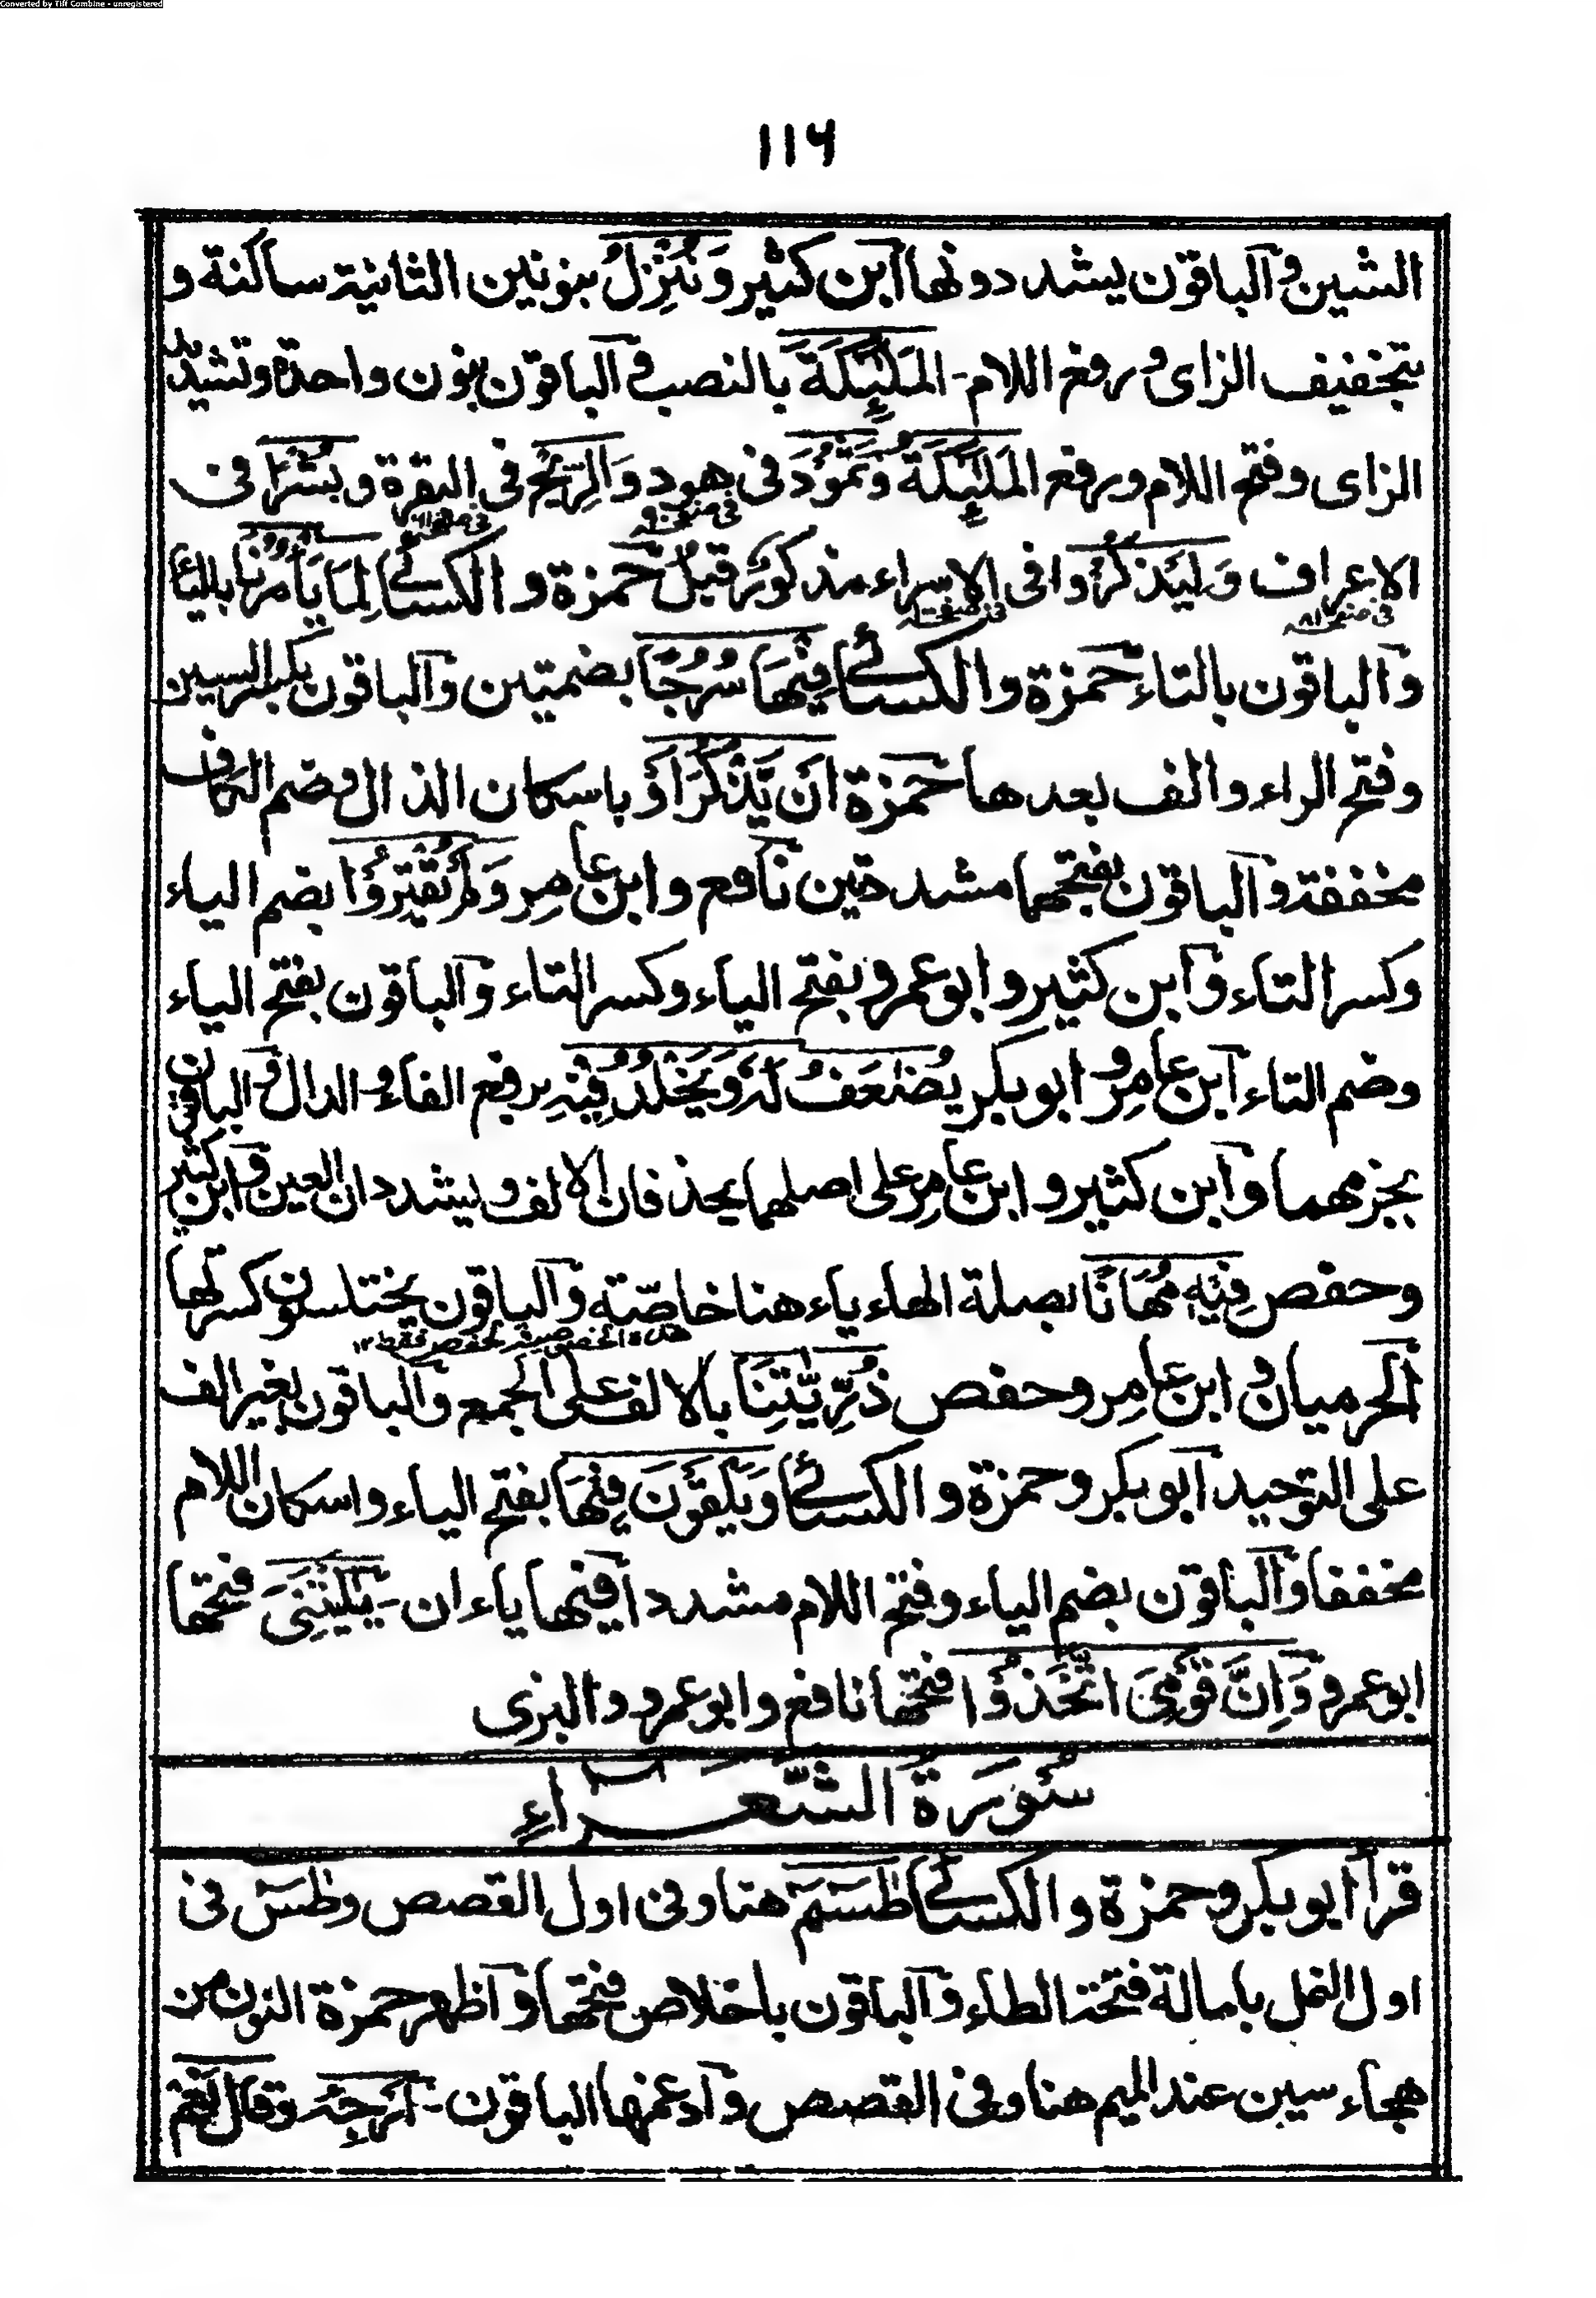 Converted by Tiff Combine - unregistered
١١٦
الشين و الباقون يشددونها ابن كثير وَنُنْزِلُ بنونين الثانية ساكنة و
بتخفيف الزاى و رفع اللام - الْمَلٰٓئِكَةَ بالنصب و الباقون بنون واحدة وتشديد
الزاى وفتح اللام ورفع الْمَلٰٓئِكَةُ وَثَمُوْدَ فى هود وَالرِّيْحَ فى البقرة وبُشْرًا فى
الاعراف وَلِيَذَّكَّرُوا فى الاسراء مذكور قبل حمزة و الكسائے لِمَا يَأْمُرُنَا بالياء
والباقون بالتاء حمزة والكسائے فِيْهَا سُرُجًا بضمتين والباقون بكسر السين
وفتح الراء والف بعدها حمزة اَنْ يَّذْكُرَ اَوْ باسكان الذال وضم الكاف
مخففة والباقون بفتحهما مشددتين نافع وابن عامر وَلَمْ يُقْتِرُوْا بضم الياء
وكسر التاء وابن كثير وابو عمرو بفتح الياء وكسر التاء والباقون بفتح الياء
وضم التاء ابن عامر و ابو بكر يُضٰعَفُ لَهٗ وَيَخْلُدُ فِيْهِ برفع الفاء و الدال والباقون
بجزمهما وابن كثير و ابن عامر على اصلهما يحذفان الالف ويشددان العين وابن كثير
وحفص فِيْهٖ مُهَانًا بصلة الهاء ياء هنا خاصّة والباقون يختلسون كسرتها
الحرميان و ابن عامر وحفص ذُرِّيّٰتِنَا بالالف على الجمع والباقون بغير الف
على التوحيد ابو بكر وحمزة و الكسائے وَيَلْقَوْنَ فِيْهَا بفتح الياء واسكان اللام
مخففا والباقون بضم الياء وفتح اللام مشددا فيها ياءان - يٰلَيْتَنِىَ فتحها
ابو عمرو وَاِنَّ قَوْمِىَ اتَّخَذُوْا فتحها نافع وابو عمرو والبزى
سُوْرَةُ الشُّعَرَاءِ
قرأ ابو بكر وحمزة و الكسائے طٰسٓمّٓ هنا وفى اول القصص وطٰسٓ فى
اول النمل بامالة فتحة الطاء والباقون باخلاص فتحها واظهر حمزة النون من
هجاء سين عند الميم هنا وفى القصص وادغمها الباقون - اَرْجِهْ وقَالَ نَعَمْ